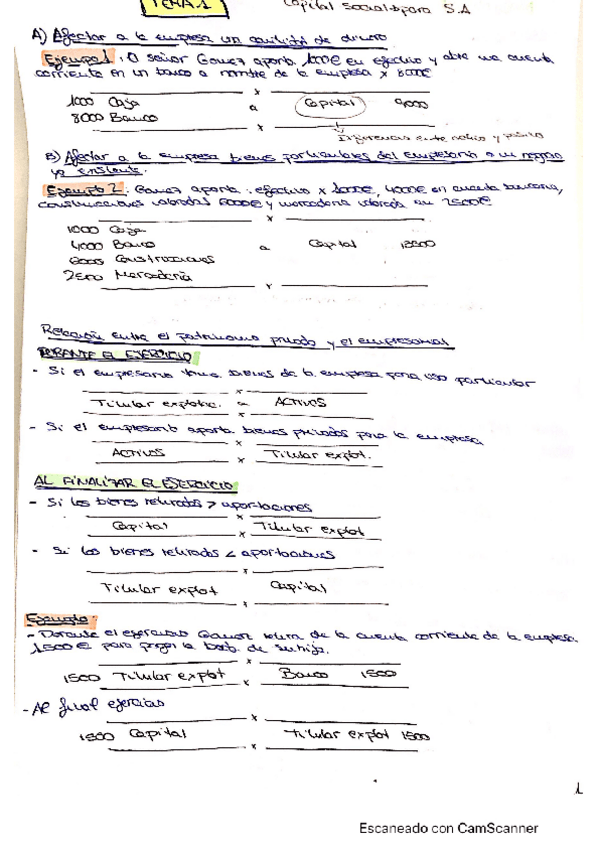 TEMA 1
Capital social → para S.A
A) Afectar a la empresa un cantidad de dinero
Ejemplo 1: O señor Gomez aporta 1000€ en efectivo y abre una cuenta
corriente en un banco a nombre de la empresa x 8000€
x
1000 Caja
a Capital 9000
8000 Banco
x
Diferencia entre activo y pasivo
B) Afectar a la empresa bienes particulares del empresario a un negocio
ya existente.
Ejemplo 2: Gomez aporta: efectivo x 1000€, 4000€ en cuenta bancaria,
construcciones valoradas 6000€ y mercadería valorada en 2500€
x
1000 Caja
4000 Banco a Capital 13500
6000 Construcciones
2500 Mercadería
x
Relación entre el patrimonio privado y el empresarial
DURANTE EL EJERCICIO
- Si el empresario toma bienes de la empresa para uso particular
x
Titular explotac. a ACTIVOS
x
- Si el empresario aporta bienes privados para la empresa
x
ACTIVOS Titular explot.
x
AL FINALIZAR EL EJERCICIO
- Si los bienes retirados > aportaciones
x
Capital Titular explot
x
- Si los bienes retirados < aportaciones
x
Titular explot Capital
x
Ejemplo:
- Durante el ejercicio Gomez retira de la cuenta corriente de la empresa
1500€ para pagar la boda de su hija.
x
1500 Titular explot Banco 1500
x
- Al final ejercicio
x
1500 Capital Titular explot 1500
x
1
Escaneado con CamScanner